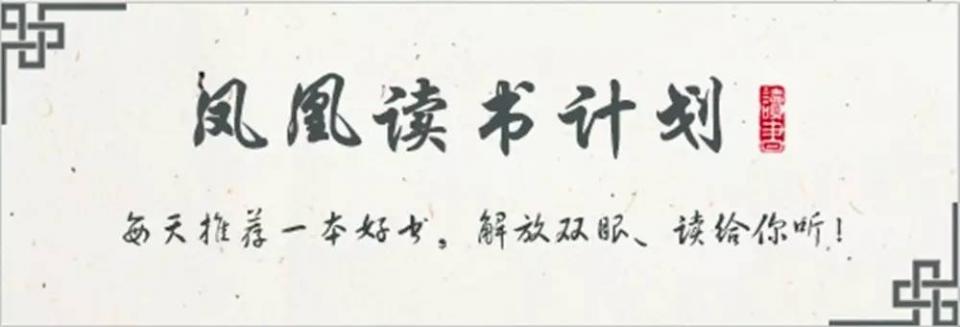 凤凰读书计划 讀書
每天推荐一本好书。解放双眼、读给你听!